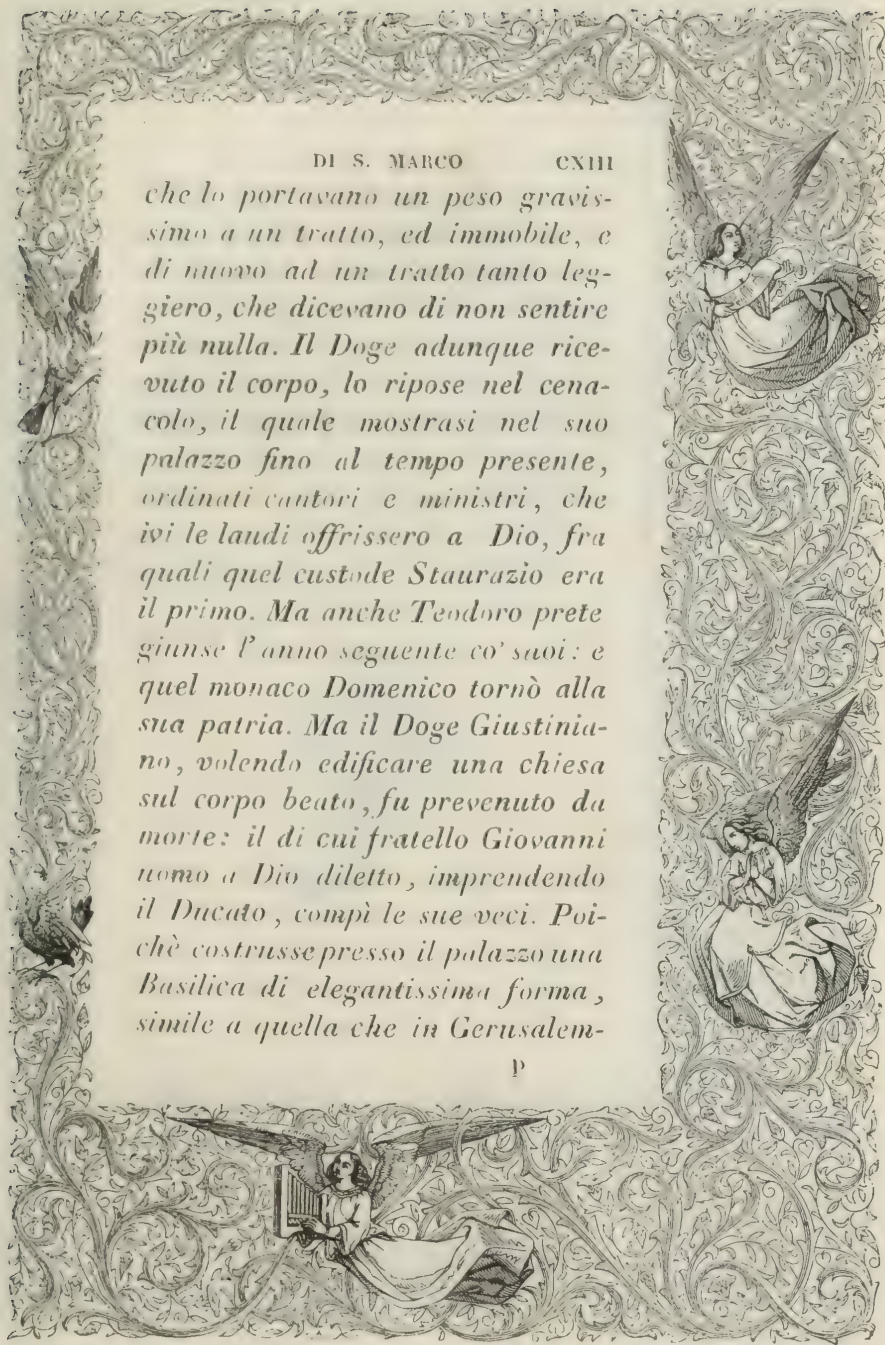 DI S. MARCO CXIII
che lo portavano un peso gravis-
simo a un tratto, ed immobile, e
di nuovo ad un tratto tanto leg-
giero, che dicevano di non sentire
più nulla. Il Doge adunque rice-
vuto il corpo, lo ripose nel cena-
colo, il quale mostrasi nel suo
palazzo fino al tempo presente,
ordinati cantori e ministri, che
ivi le laudi offrissero a Dio, fra
quali quel custode Staurazio era
il primo. Ma anche Teodoro prete
giunse l'anno seguente co' suoi: e
quel monaco Domenico tornò alla
sua patria. Ma il Doge Giustinia-
no, volendo edificare una chiesa
sul corpo beato, fu prevenuto da
morte: il di cui fratello Giovanni
uomo a Dio diletto, imprendendo
il Ducato, compì le sue veci. Poi-
chè costrusse presso il palazzo una
Basilica di elegantissima forma,
simile a quella che in Gerusalem-
P